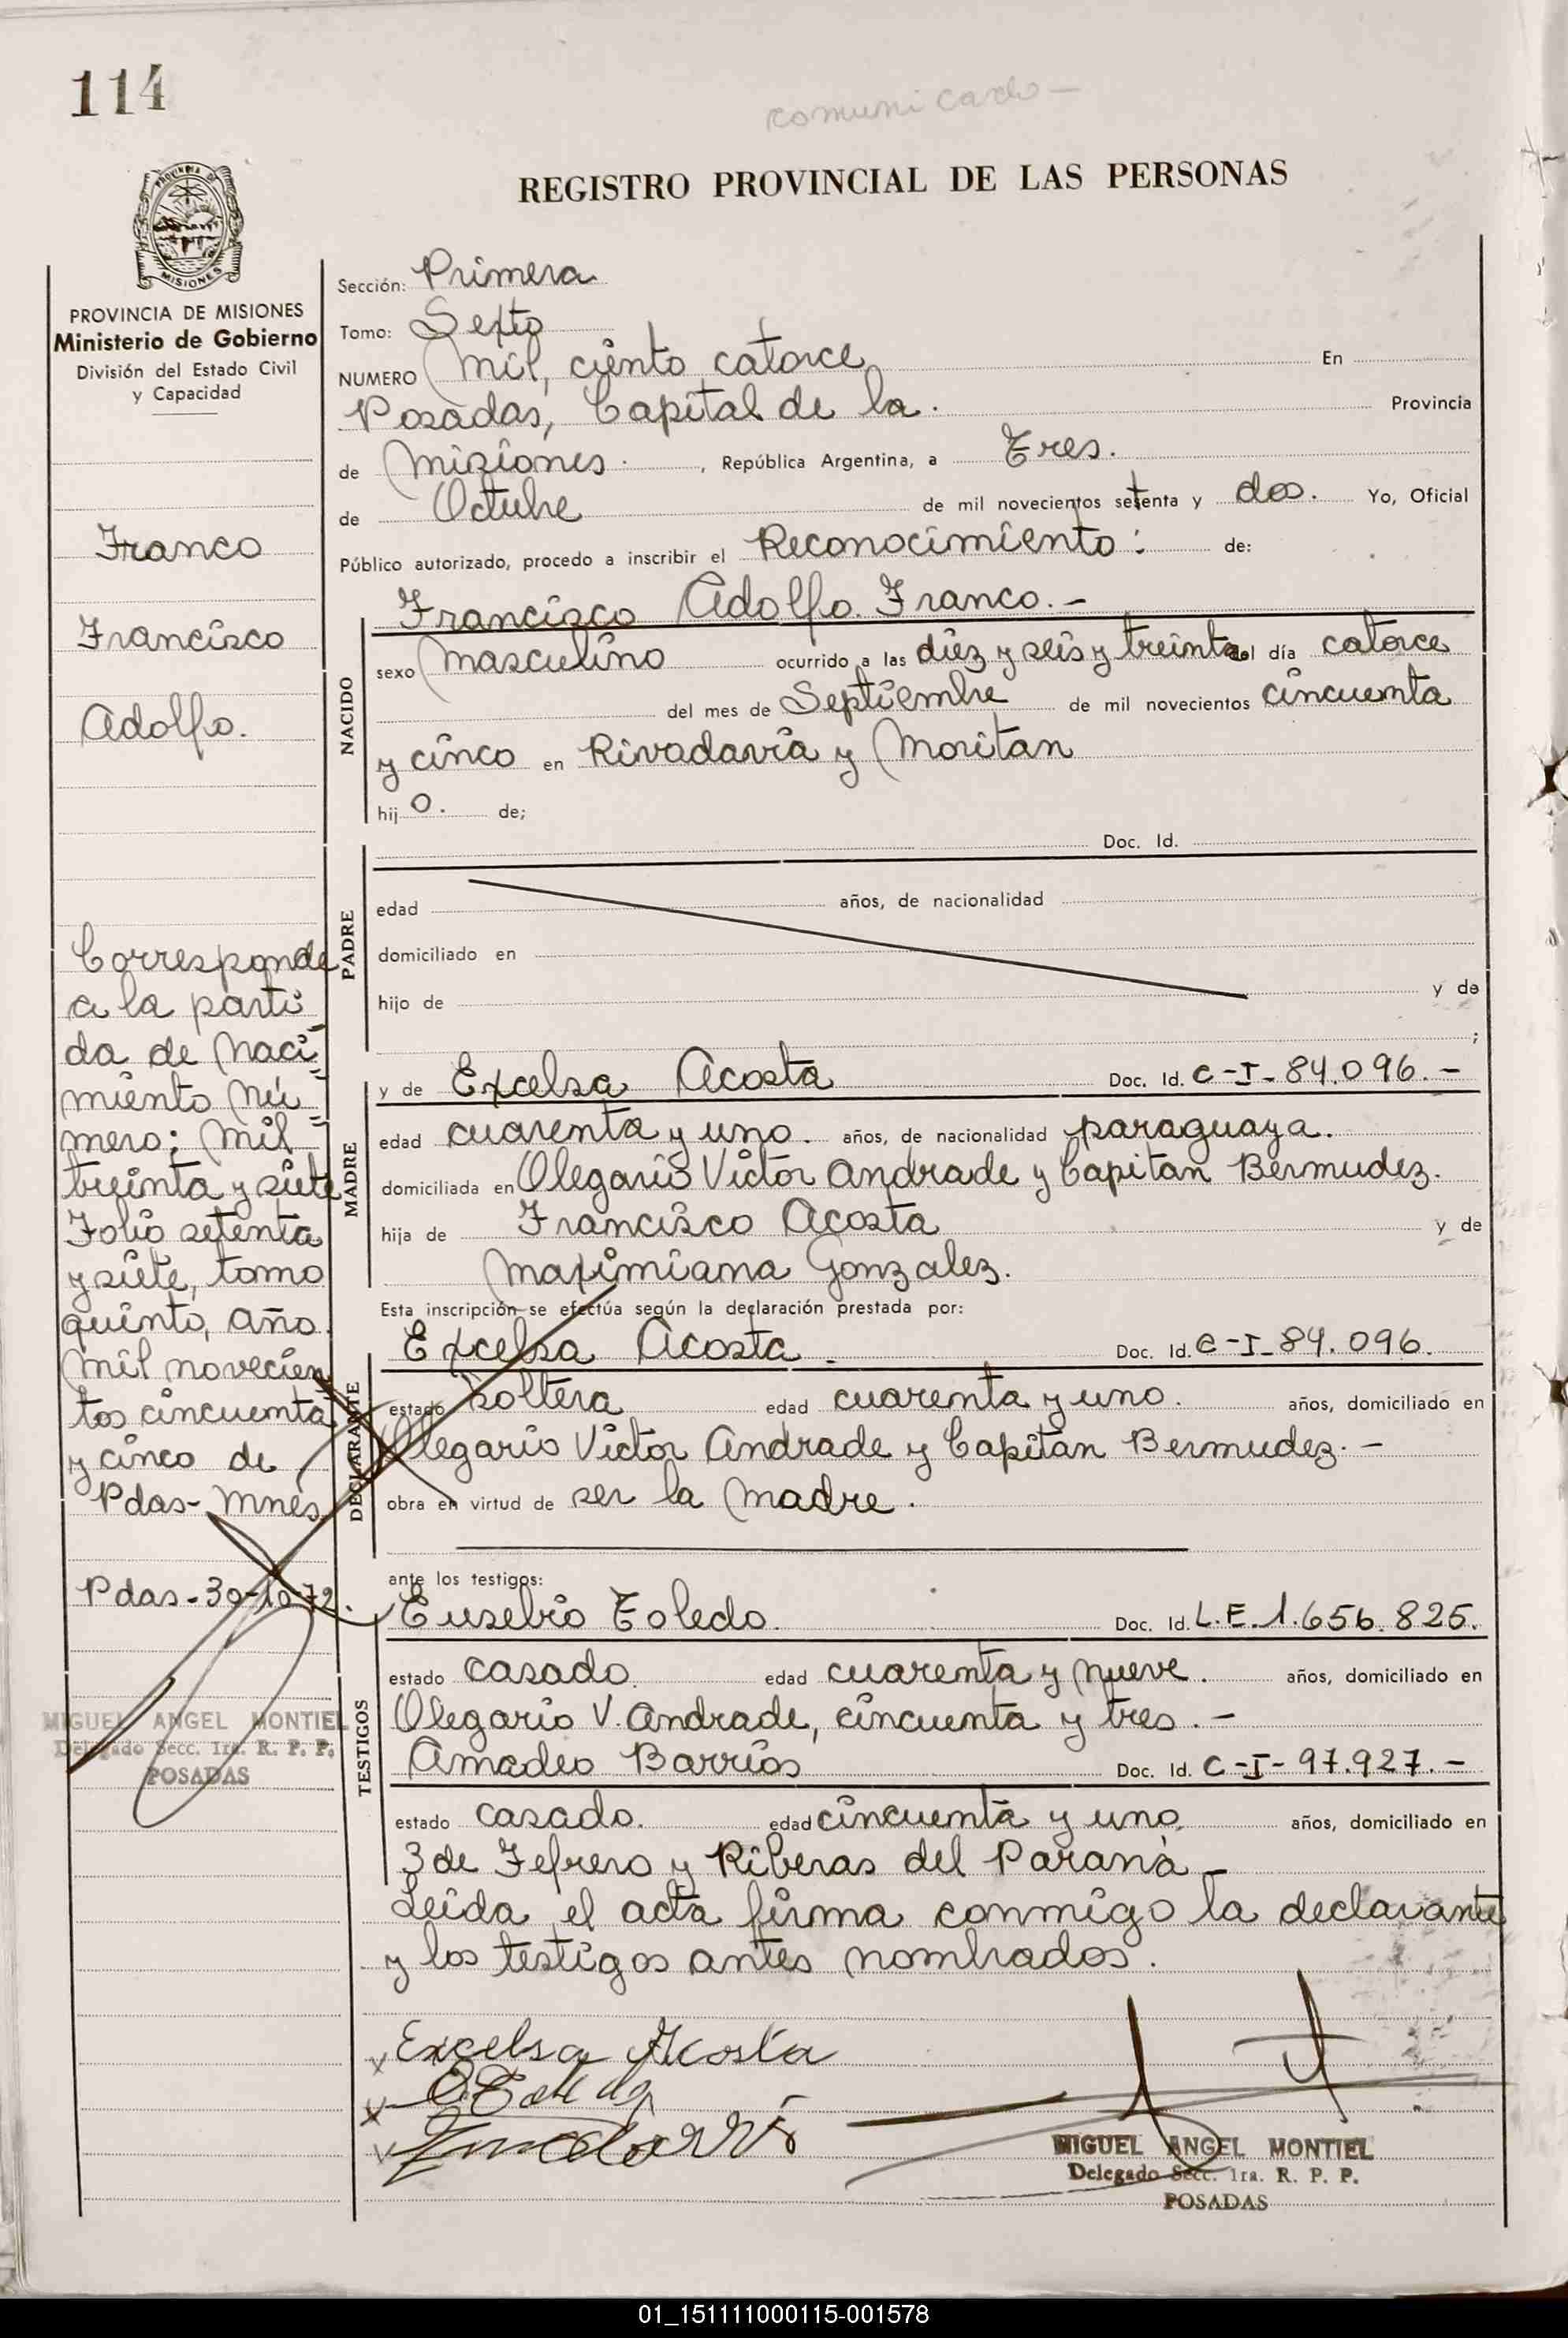 114
comunicado -
REGISTRO PROVINCIAL DE LAS PERSONAS
MISIONES
PROVINCIA DE MISIONES
Ministerio de Gobierno
División del Estado Civil
y Capacidad
Franco
Francisco
Adolfo.
Corresponde
a la parti=
da de Naci=
miento Nú=
mero: Mil
treinta y siete
Folio setenta
y siete, tomo
quinto, año
mil novecien
tos cincuenta
y cinco de
Pdas- Mnes.
Pdas-30-10-72.
MIGUEL ANGEL MONTIEL
Delegado Secc. 1ra. R. P. P.
POSADAS
Sección: Primera
Tomo: Sexto
NUMERO Mil, ciento catorce En
Posadas, Capital de la. Provincia
de Misiones. , República Argentina, a Tres.
de Octubre de mil novecientos setenta y dos. Yo, Oficial
Público autorizado, procedo a inscribir el Reconocimiento: de:
Francisco Adolfo Franco.-
NACIDO
sexo Masculino ocurrido a las diez y seis y treinta del día catorce
del mes de Septiembre de mil novecientos cincuenta
y cinco en Rivadavia y Moritan
hij o. de;
PADRE
Doc. Id.
edad años, de nacionalidad
domiciliado en
hijo de y de
;
MADRE
y de Excelsa Acosta Doc. Id. C-I-84.096.-
edad cuarenta y uno. años, de nacionalidad paraguaya.
domiciliada en Olegario Victor Andrade y Capitan Bermudez.
hija de Francisco Acosta y de
Maximiana Gonzalez.
Esta inscripción se efectúa según la declaración prestada por:
DECLARANTE
Excelsa Acosta. Doc. Id. C-I-84.096.
estado soltera edad cuarenta y uno. años, domiciliado en
Olegario Victor Andrade y Capitan Bermudez.-
obra en virtud de ser la madre.
ante los testigos:
TESTIGOS
Eusebio Toledo. Doc. Id. L.E.1.656.825.
estado casado. edad cuarenta y nueve. años, domiciliado en
Olegario V. Andrade, cincuenta y tres.-
Amadeo Barrios Doc. Id. C-I-97.927.-
estado casado. edad cincuenta y uno. años, domiciliado en
3 de Febrero y Riberas del Paraná-
Leida el acta firma conmigo la declarante
y los testigos antes nombrados.
Excelsa Acosta
MIGUEL ANGEL MONTIEL
Delegado Secc. 1ra. R. P. P.
POSADAS
01_151111000115-001578